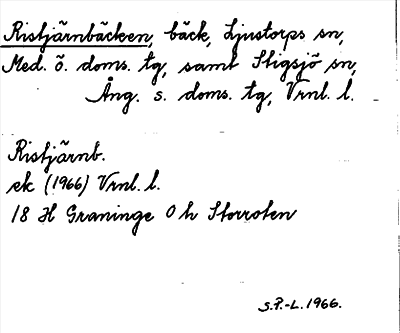 Ristjärnbäcken, bäck, Ljustorps sn,
Med. ö. doms. tg, samt Stigsjö sn,
Ång. s. doms. tg, Vrnl. l.
Ristjärnb.
ek (1966) Vrnl. l.
18 H Graninge 0 h Storroten
S.P.-L. 1966.